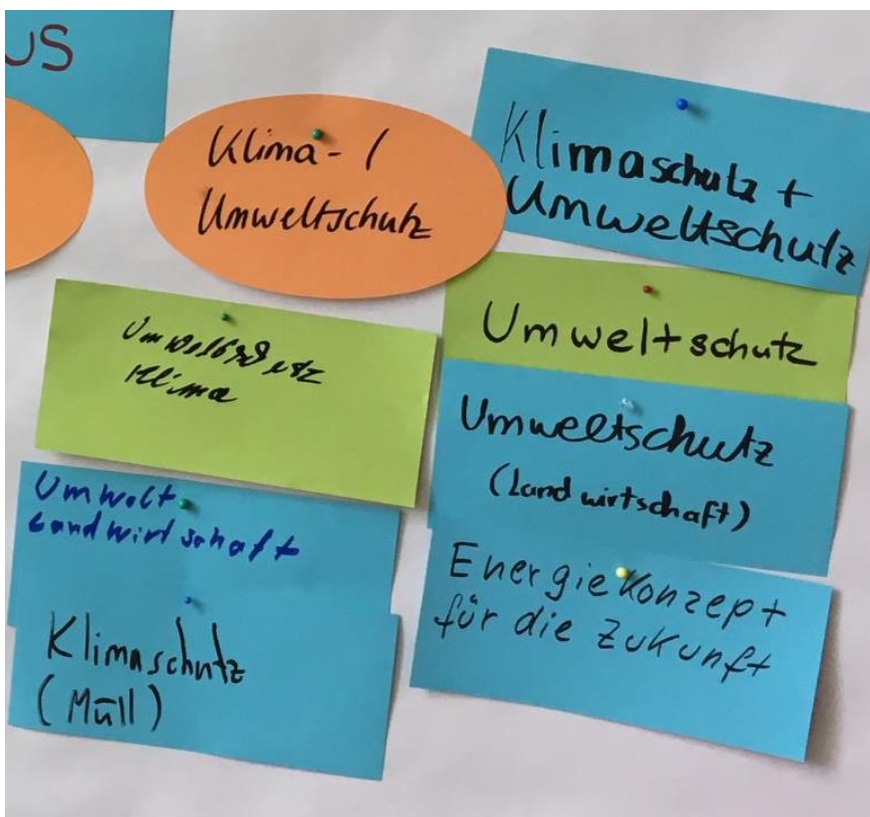 US
Klima- /
Umweltschutz
Klimaschutz +
Umweltschutz
Umweltschutz
Klima
Umweltschutz
Umweltschutz
(Landwirtschaft)
Umwelt
Landwirtschaft
Energiekonzept
für die Zukunft
Klimaschutz
(Müll)